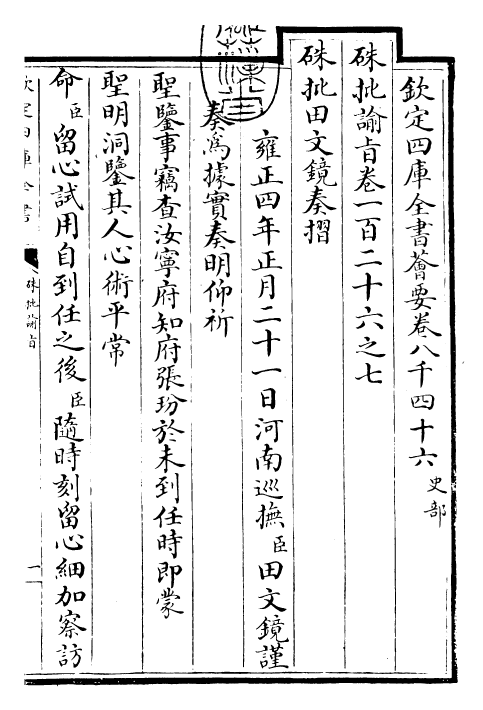 欽定四庫全書薈要卷八千四十六 史部
硃批諭旨卷一百二十六之七
硃批田文鏡奏摺
雍正四年正月二十一日河南巡撫臣田文鏡謹
奏為據實奏明仰祈
聖鑒事竊查汝寧府知府張玢於未到任時即蒙
聖明洞鑒其人心術平常
命臣留心試用自到任之後臣隨時刻留心細加察訪
欽定四庫全書
硃批諭旨
一